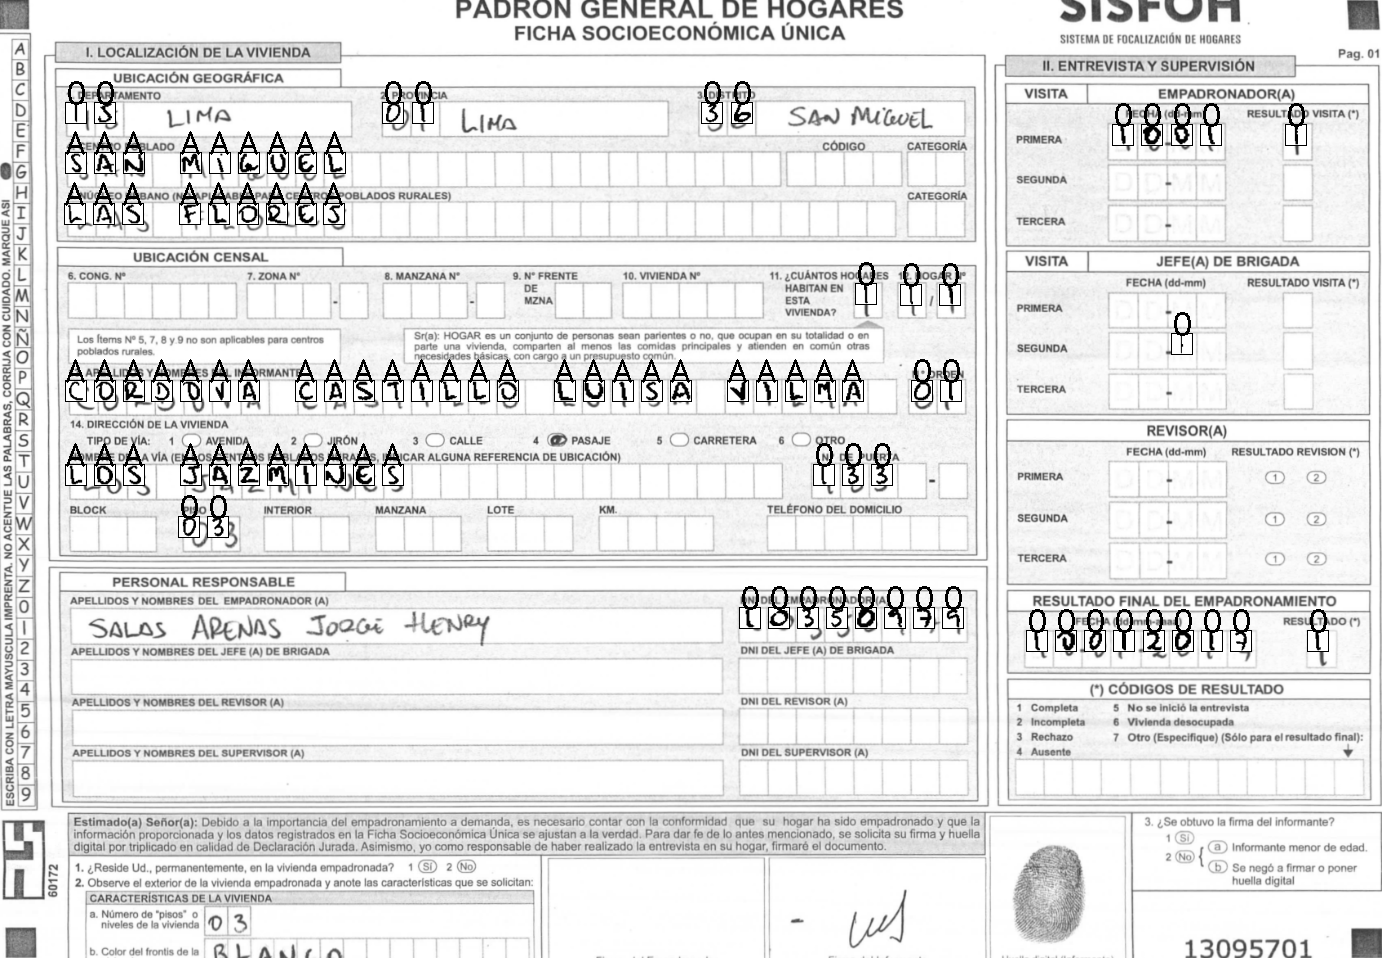 PADRÓN GENERAL DE HOGARES
FICHA SOCIOECONÓMICA ÚNICA
SISFOH
SISTEMA DE FOCALIZACIÓN DE HOGARES
Pag. 01
ESCRIBA CON LETRA MAYUSCULA IMPRENTA. NO ACENTUE LAS PALABRAS, CORRIJA CON CUIDADO. MARQUE ASI
A B C D E F G H I J K L M N Ñ O P Q R S T U V W X Y Z 0 1 2 3 4 5 6 7 8 9
I. LOCALIZACIÓN DE LA VIVIENDA
UBICACIÓN GEOGRÁFICA
DEPARTAMENTO PROVINCIA 3. DISTRITO
15 LIMA 01 LIMA 36 SAN MIGUEL
CENTRO POBLADO CÓDIGO CATEGORÍA
SAN MIGUEL
CATEGORÍA
LAS FLORES
UBICACIÓN CENSAL
6. CONG. Nº 7. ZONA Nº 8. MANZANA Nº 9. Nº FRENTE DE MZNA 10. VIVIENDA Nº 11. ¿CUÁNTOS HOGARES HABITAN EN ESTA VIVIENDA? 12. HOGAR Nº
1 1 / 1
Los Ítems Nº 5, 7, 8 y 9 no son aplicables para centros poblados rurales.
Sr(a): HOGAR es un conjunto de personas sean parientes o no, que ocupan en su totalidad o en
parte una vivienda, comparten al menos las comidas principales y atienden en común otras
necesidades básicas, con cargo a un presupuesto común.
APELLIDOS Y NOMBRES DEL INFORMANTE Nº ORDEN
CORDOVA CASTILLO LUISA VILMA 01
14. DIRECCIÓN DE LA VIVIENDA
TIPO DE VÍA: 1 AVENIDA 2 JIRÓN 3 CALLE 4 PASAJE 5 CARRETERA 6 OTRO
NOMBRE DE LA VÍA (EN LOS CENTROS POBLADOS RURALES, INDICAR ALGUNA REFERENCIA DE UBICACIÓN) Nº DE PUERTA
LOS JAZMINES 133 -
BLOCK PISO INTERIOR MANZANA LOTE KM. TELÉFONO DEL DOMICILIO
03
PERSONAL RESPONSABLE
APELLIDOS Y NOMBRES DEL EMPADRONADOR (A) DNI DEL EMPADRONADOR (A)
SALAS ARENAS JORGE HENRY 10358979
APELLIDOS Y NOMBRES DEL JEFE (A) DE BRIGADA DNI DEL JEFE (A) DE BRIGADA
APELLIDOS Y NOMBRES DEL REVISOR (A) DNI DEL REVISOR (A)
APELLIDOS Y NOMBRES DEL SUPERVISOR (A) DNI DEL SUPERVISOR (A)
II. ENTREVISTA Y SUPERVISIÓN
VISITA EMPADRONADOR(A)
FECHA (dd-mm) RESULTADO VISITA (*)
PRIMERA 10-01 1
SEGUNDA DD-MM
TERCERA DD-MM
VISITA JEFE(A) DE BRIGADA
FECHA (dd-mm) RESULTADO VISITA (*)
PRIMERA DD-MM
SEGUNDA DD-MM
TERCERA DD-MM
REVISOR(A)
FECHA (dd-mm) RESULTADO REVISION (*)
PRIMERA DD-MM 1 2
SEGUNDA DD-MM 1 2
TERCERA DD-MM 1 2
RESULTADO FINAL DEL EMPADRONAMIENTO
FECHA (dd-mm-aaaa) RESULTADO (*)
10-01-2017 1
(*) CÓDIGOS DE RESULTADO
1 Completa 5 No se inició la entrevista
2 Incompleta 6 Vivienda desocupada
3 Rechazo 7 Otro (Especifique) (Sólo para el resultado final):
4 Ausente
60172
Estimado(a) Señor(a): Debido a la importancia del empadronamiento a demanda, es necesario contar con la conformidad que su hogar ha sido empadronado y que la
información proporcionada y los datos registrados en la Ficha Socioeconómica Única se ajustan a la verdad. Para dar fe de lo antes mencionado, se solicita su firma y huella
digital por triplicado en calidad de Declaración Jurada. Asimismo, yo como responsable de haber realizado la entrevista en su hogar, firmaré el documento.
1. ¿Reside Ud., permanentemente, en la vivienda empadronada? 1 Sí 2 No
2. Observe el exterior de la vivienda empadronada y anote las características que se solicitan:
CARACTERÍSTICAS DE LA VIVIENDA
a. Número de "pisos" o niveles de la vivienda 03
b. Color del frontis de la BLANCO
3. ¿Se obtuvo la firma del informante?
1 Sí
2 No { a Informante menor de edad.
b Se negó a firmar o poner huella digital
13095701